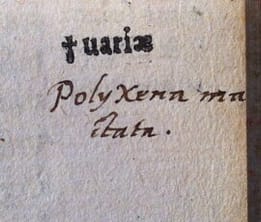 †uariæ
Polyxena ma
ctata.